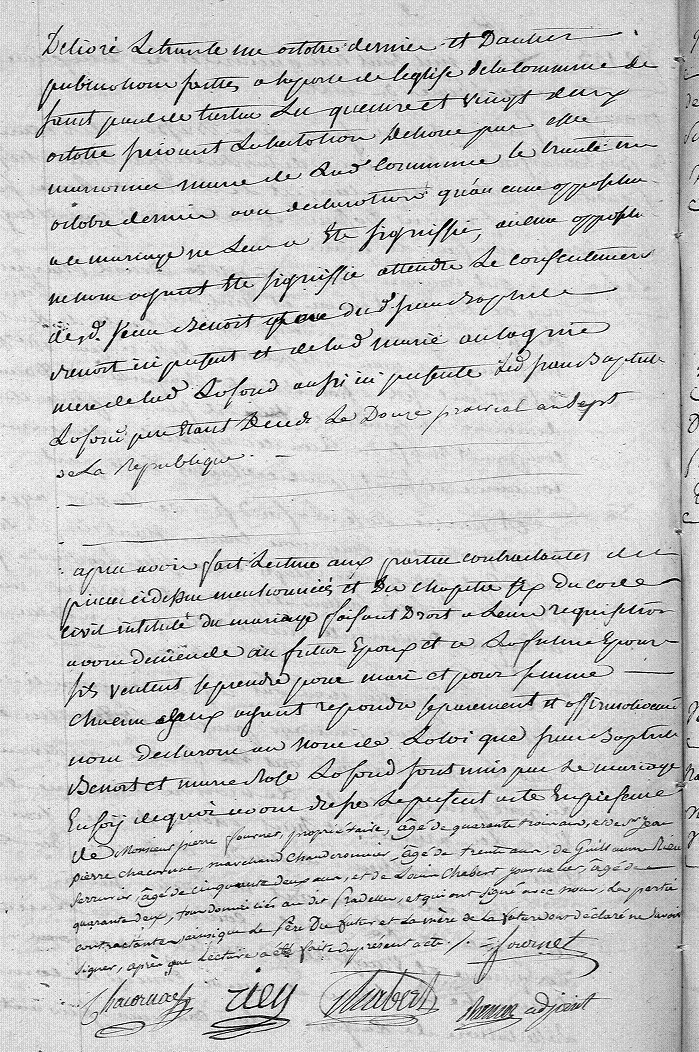 Delivré Le trente un octobre dernier et Dautres
publications faittes a la porte de leglise de la Commune de
saint paul de tartas Les quinze et vingt deux
octobre suivant La
maire de Lad Commune le trente un
octobre dernier avec declaration qu'au cune opposition
a ce mariage ne Leur a Ete signiffié, aucune opposition
ne nous ayant Ete signiffie attendu Le consentement
de sd Jean Benoit pere dud jean Baptiste
Benoit ici present et de lad marie
mere de lad Lafond aussi ici presente Led jean Baptiste
Lafond Le Douze prairial an sept
de La republique.
apres avoir fait Lecture aux parties contractantes des
pieces ci dessus mentionnées et Du chapitre six du code
civil intitulé du mariage faisant Droit a Leur requisition
avons demandé au futur Epoux et a La future Epouse
sils veulent se prendre pour mari et pour femme
chacun deux ayant repondu separement et affirmativement
nous declarons au Nom de La Loi que jean Baptiste
Benoit et marie Rose Lafond sont unis par Le mariage
En foy de quoi avons dressé Le present acte En presence
de Monsieur pierre fournet, propriétaire, âgé de quarante trois ans, et de sr jean
pierre chacornac, marchand chaudronnier, âgé de trente ans, de Guillaume Rieu
serrurier, âgé de cinquante deux ans, et de Louis Chabert journalier, âgé de
quarante deux, tous domiciliés au dit Pradelles, et qui ont signé avec nous, La partie
contractantes ainsi que Le Père Du futur et La mère de La future ont déclaré ne Savoir
signer, après que Lecture a été faite du present acte ./. fournet
Chacornac rieu Chabert adjoint